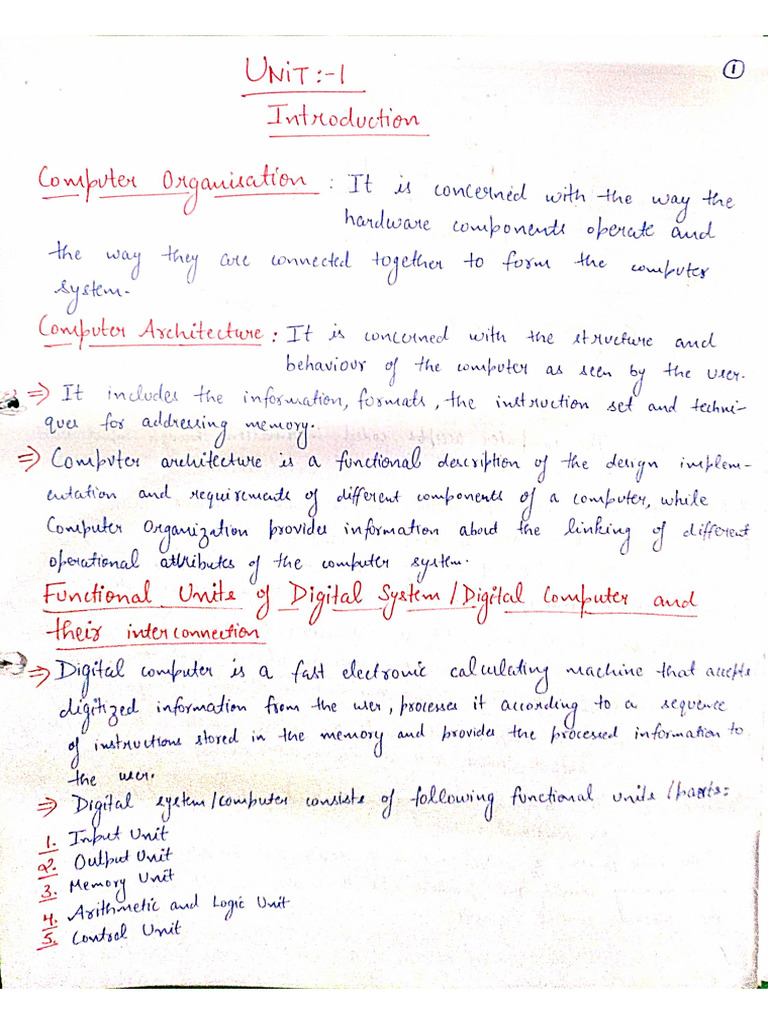 UNIT:-1
1
Introduction
Computer Organisation : It is concerned with the way the
hardware components operate and
the way they are connected together to form the computer
system.
Computer Architecture : It is concerned with the structure and
behaviour of the computer as seen by the user.
⇒ It includes the information, formats, the instruction set and techni-
ques for addressing memory.
⇒ Computer architecture is a functional description of the design implem-
entation and requirements of different components of a computer, while
Computer Organization provides information about the linking of different
operational attributes of the computer system.
Functional Units of Digital System / Digital Computer and
their interconnection
⇒ Digital computer is a fast electronic calculating machine that accepts
digitized information from the user, processes it according to a sequence
of instructions stored in the memory and provides the processed information to
the user.
⇒ Digital system/computer consists of following functional units / parts:
1. Input Unit
2. Output Unit
3. Memory Unit
4. Arithmetic and Logic Unit
5. Control Unit